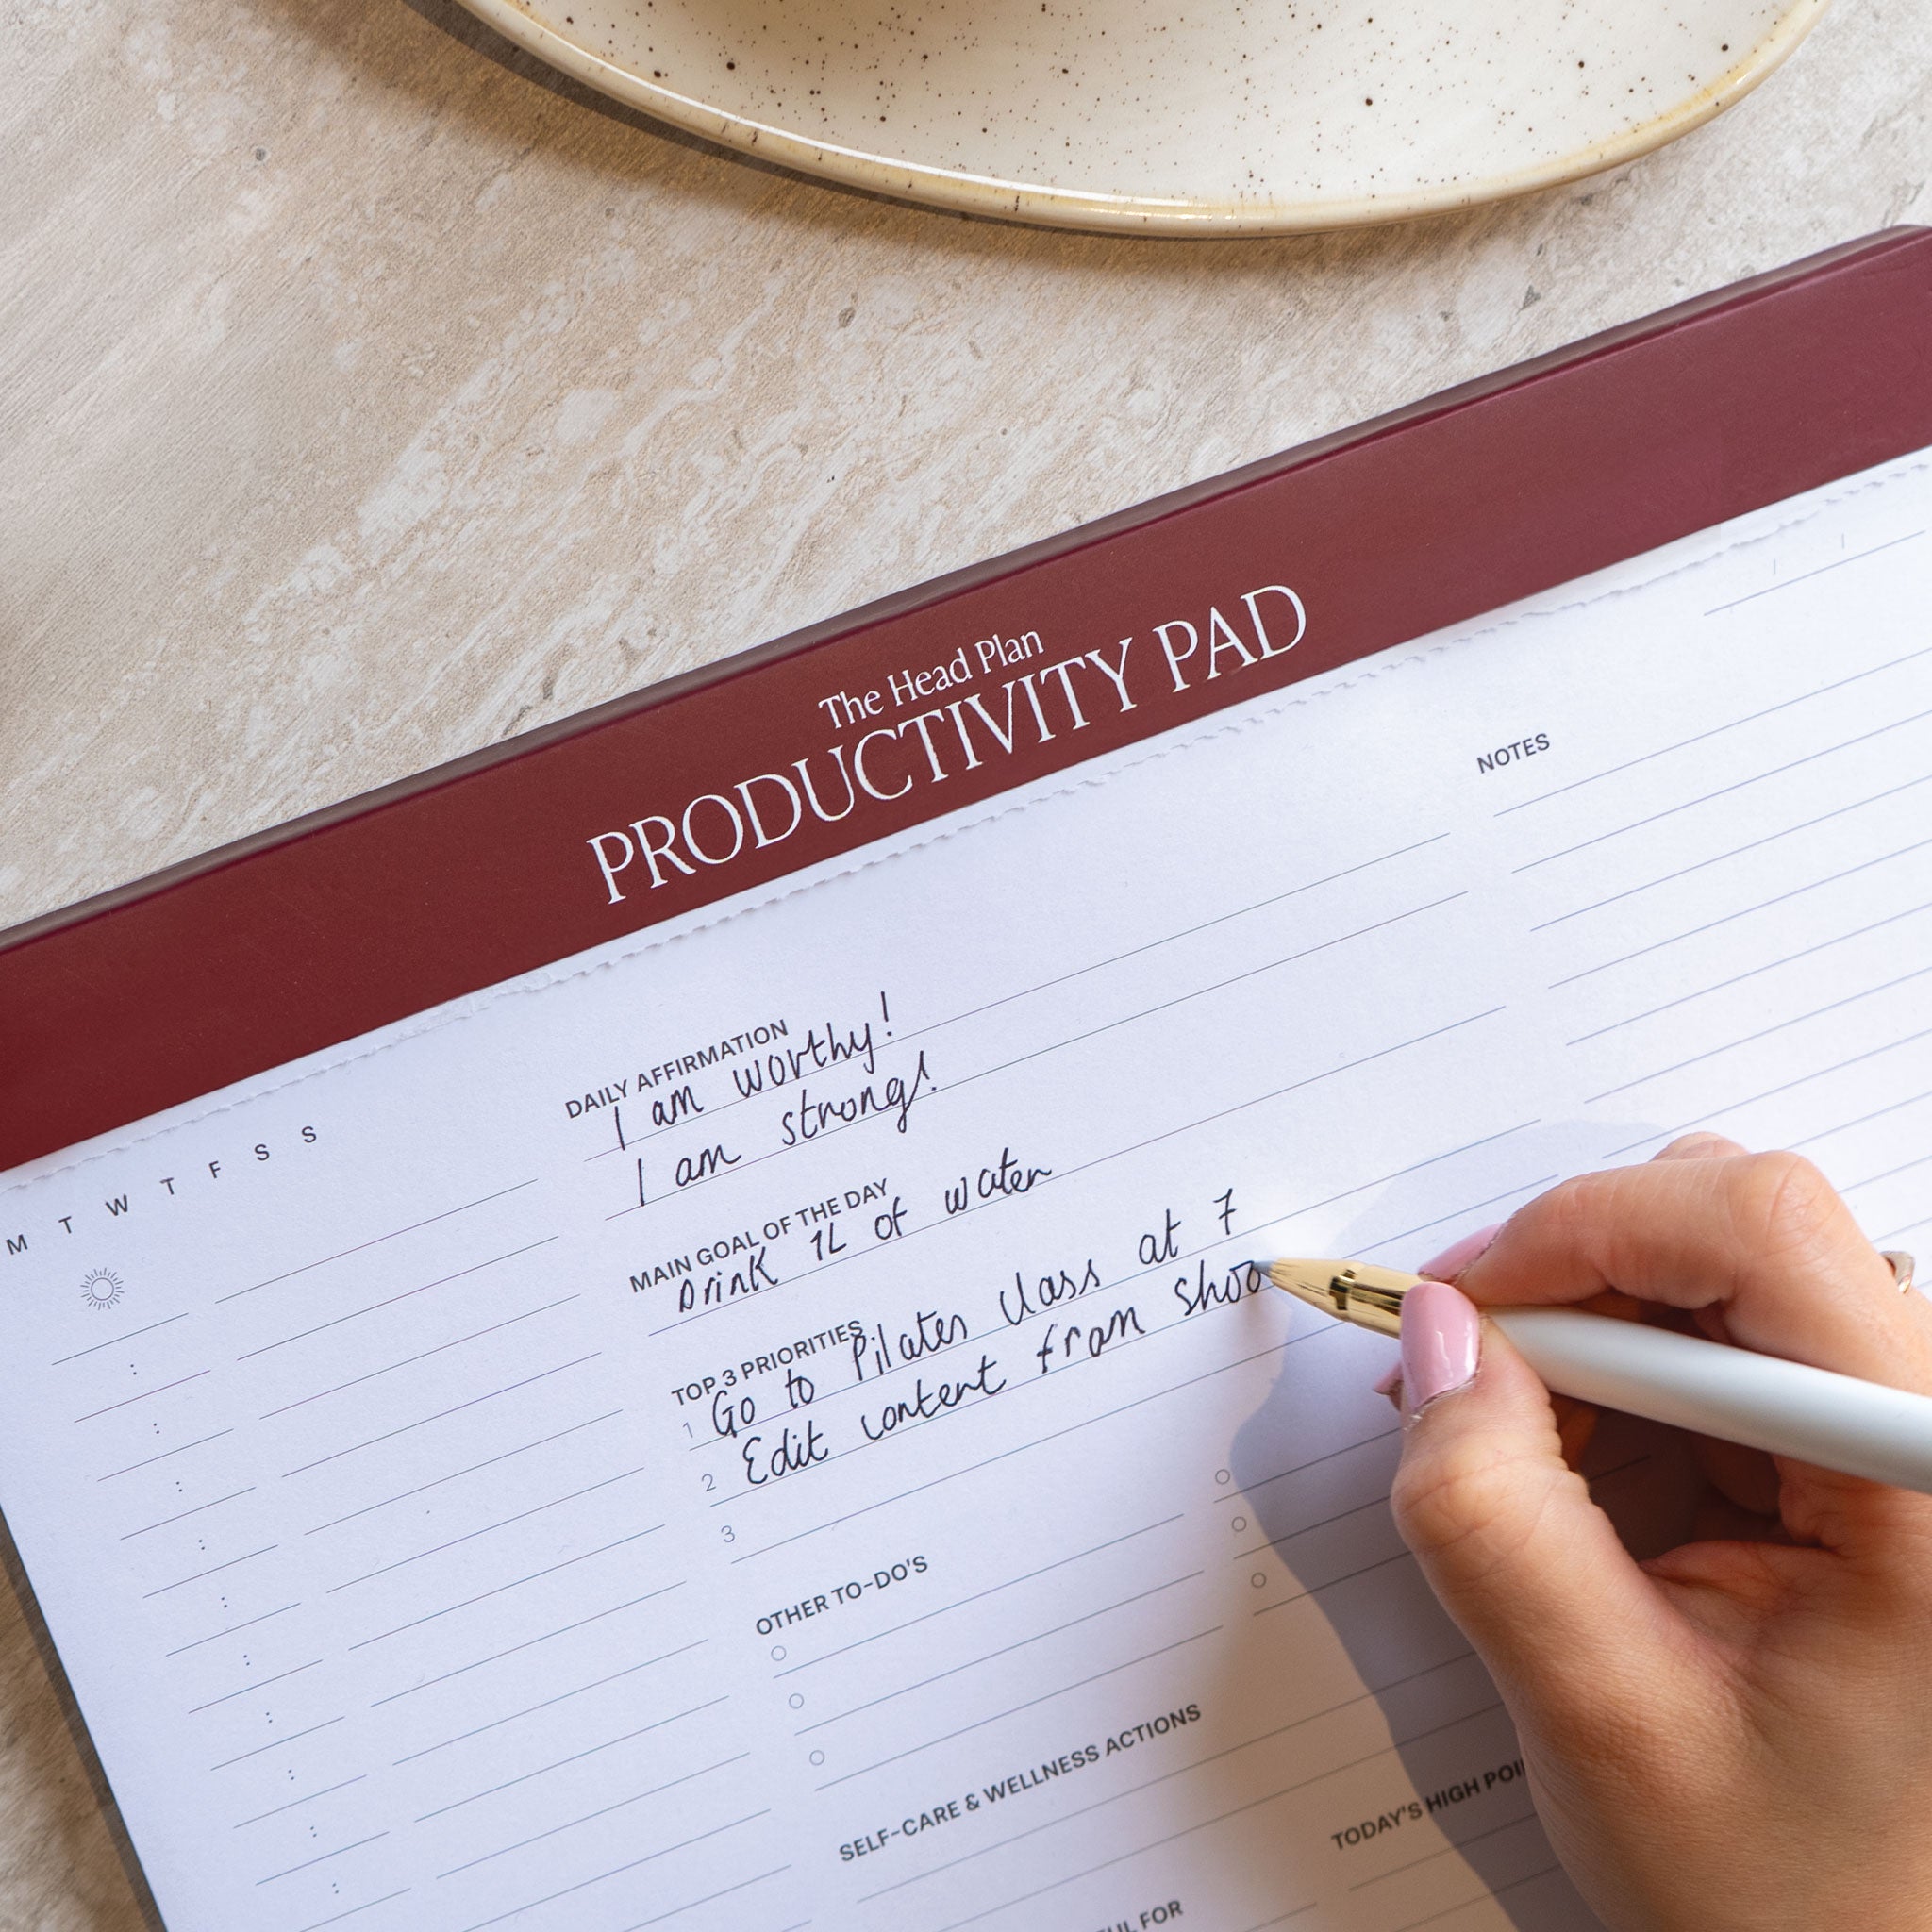 The Head Plan
PRODUCTIVITY PAD
M T W T F S S
DAILY AFFIRMATION
I am worthy!
I am strong!
MAIN GOAL OF THE DAY
Drink 1L of water
TOP 3 PRIORITIES
1 Go to Pilates class at 7
2 Edit content from shoo
3
OTHER TO-DO'S
SELF-CARE & WELLNESS ACTIONS
NOTES
TODAY'S HIGH
FOR